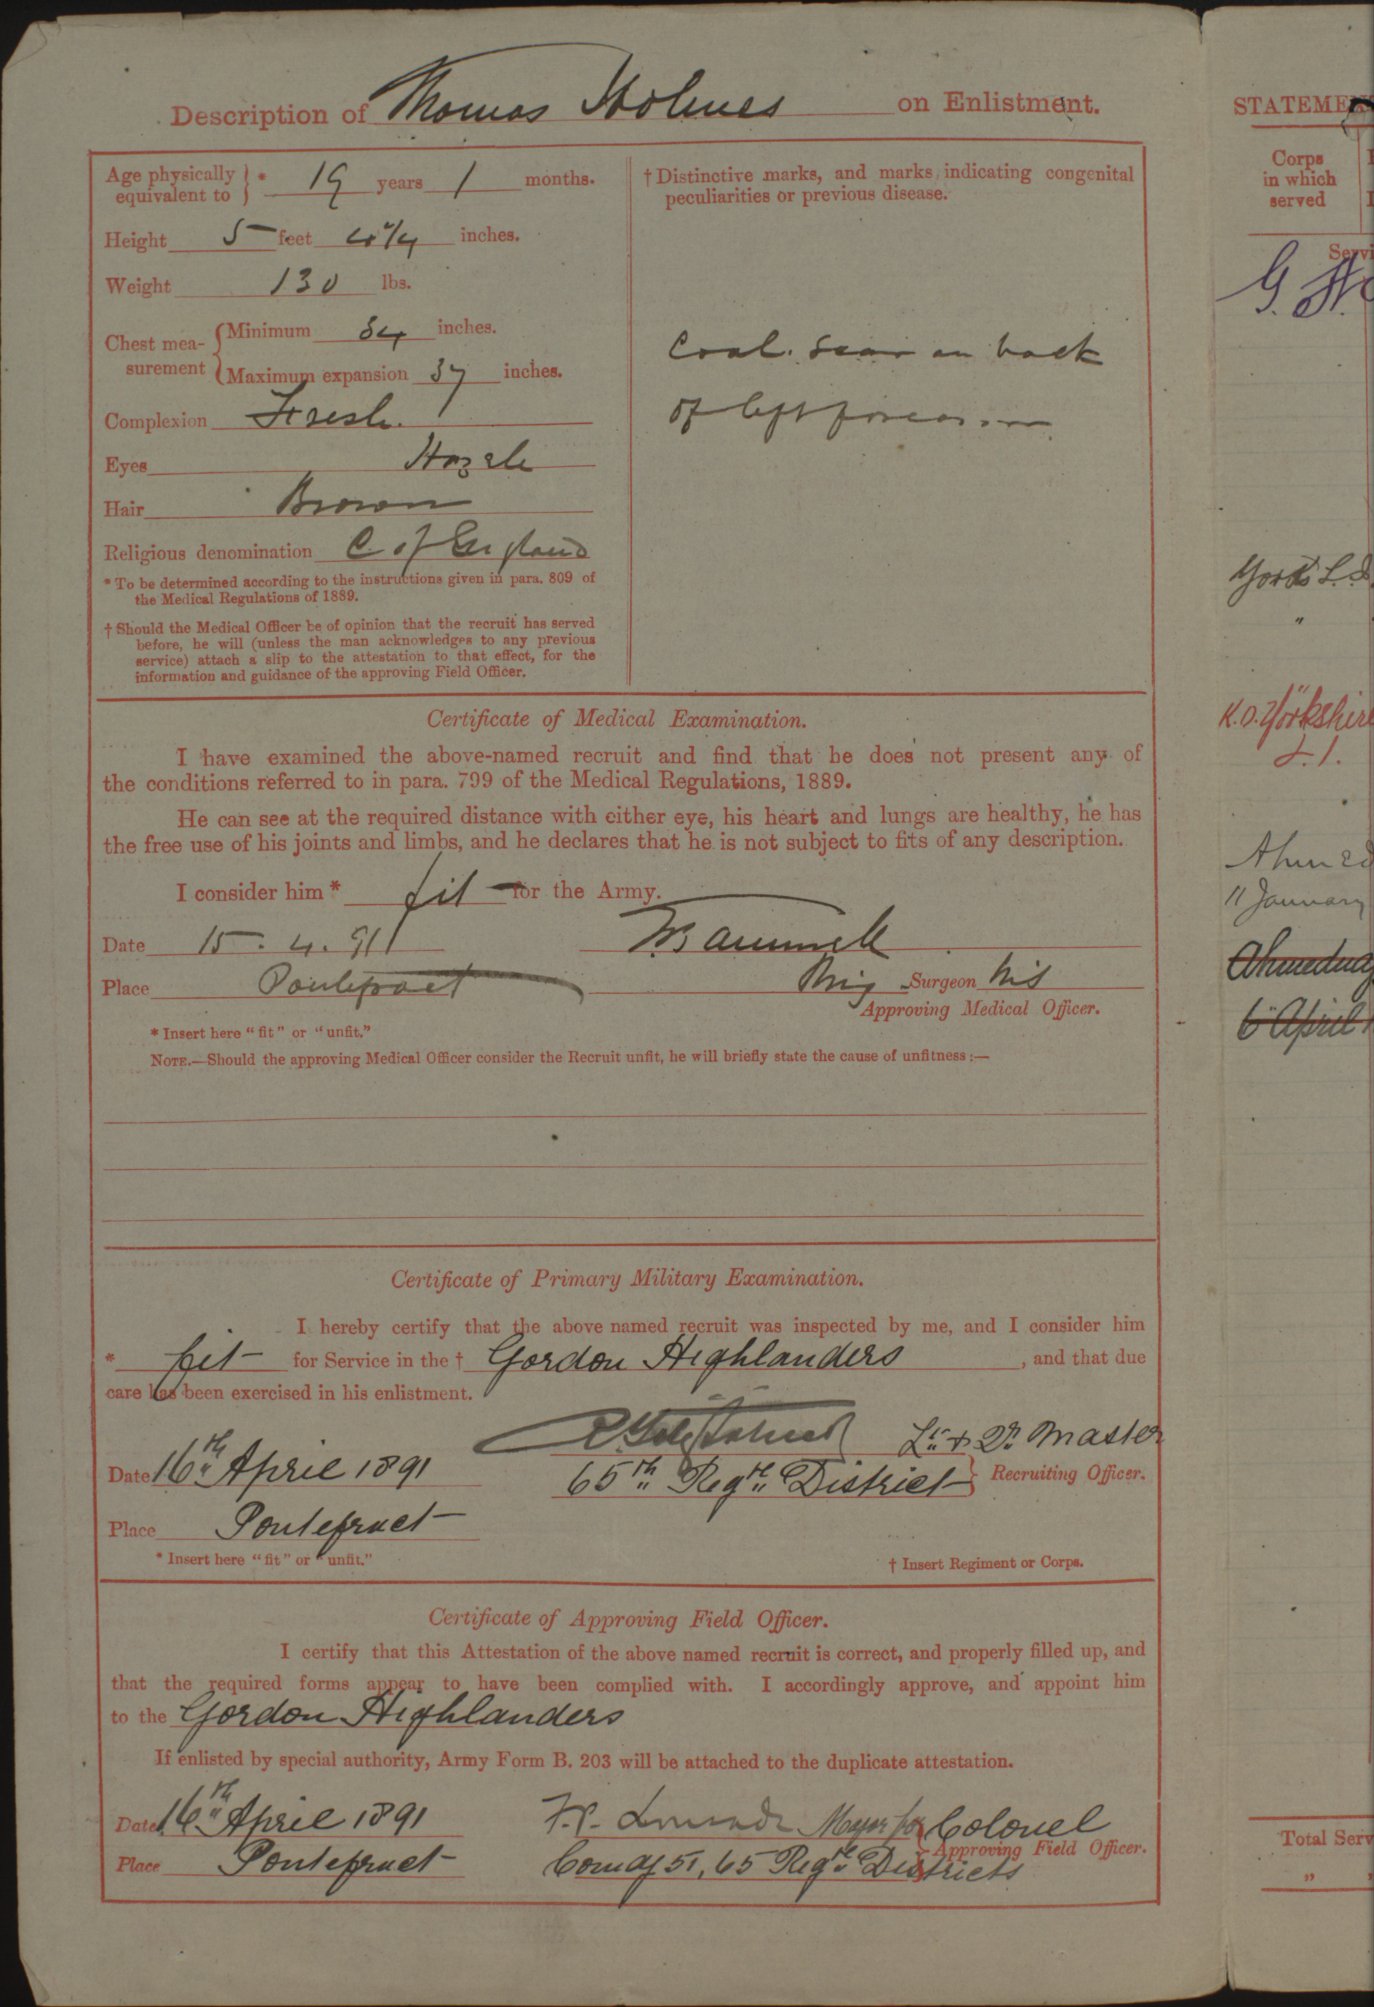 Description of Thomas Holmes on Enlistment.
Age physically equivalent to } * 19 years 1 months.
Height 5 feet inches.
Weight 130 lbs.
Chest measurement { Minimum 34 inches.
Maximum expansion 37 inches.
Complexion Fresh.
Eyes Hazle
Hair Brown
Religious denomination C. of England
* To be determined according to the instructions given in para. 809 of
the Medical Regulations of 1889.
† Should the Medical Officer be of opinion that the recruit has served
before, he will (unless the man acknowledges to any previous
service) attach a slip to the attestation to that effect, for the
information and guidance of the approving Field Officer.
† Distinctive marks, and marks indicating congenital
peculiarities or previous disease.
Coal. scar on back
of left forearm
Certificate of Medical Examination.
I have examined the above-named recruit and find that he does not present any of
the conditions referred to in para. 799 of the Medical Regulations, 1889.
He can see at the required distance with either eye, his heart and lungs are healthy, he has
the free use of his joints and limbs, and he declares that he is not subject to fits of any description.
I consider him * fit for the Army.
Date 15. 4. 91
Place Pontefract
Brig Surgeon
Approving Medical Officer.
* Insert here "fit" or "unfit."
NOTE.—Should the approving Medical Officer consider the Recruit unfit, he will briefly state the cause of unfitness:—
Certificate of Primary Military Examination.
I hereby certify that the above named recruit was inspected by me, and I consider him
* fit for Service in the † Gordon Highlanders, and that due
care has been exercised in his enlistment.
Lt. & Qr. Master
Date 16th April 1891 65th Regtl District } Recruiting Officer.
Place Pontefract
* Insert here "fit" or "unfit." † Insert Regiment or Corps.
Certificate of Approving Field Officer.
I certify that this Attestation of the above named recruit is correct, and properly filled up, and
that the required forms appear to have been complied with. I accordingly approve, and appoint him
to the Gordon Highlanders
If enlisted by special authority, Army Form B. 203 will be attached to the duplicate attestation.
Date 16th April 1891 Major for Colonel
Approving Field Officer.
Place Pontefract Comdg 51, 65 Regtl Districts
STATEMEN
Corps
in which
served
Servi
G. H
Yorks L.I.
"
K.O. Yorkshire
L.I.
Ahmed
11 January
Ahmednag
6 April
Total Serv
"